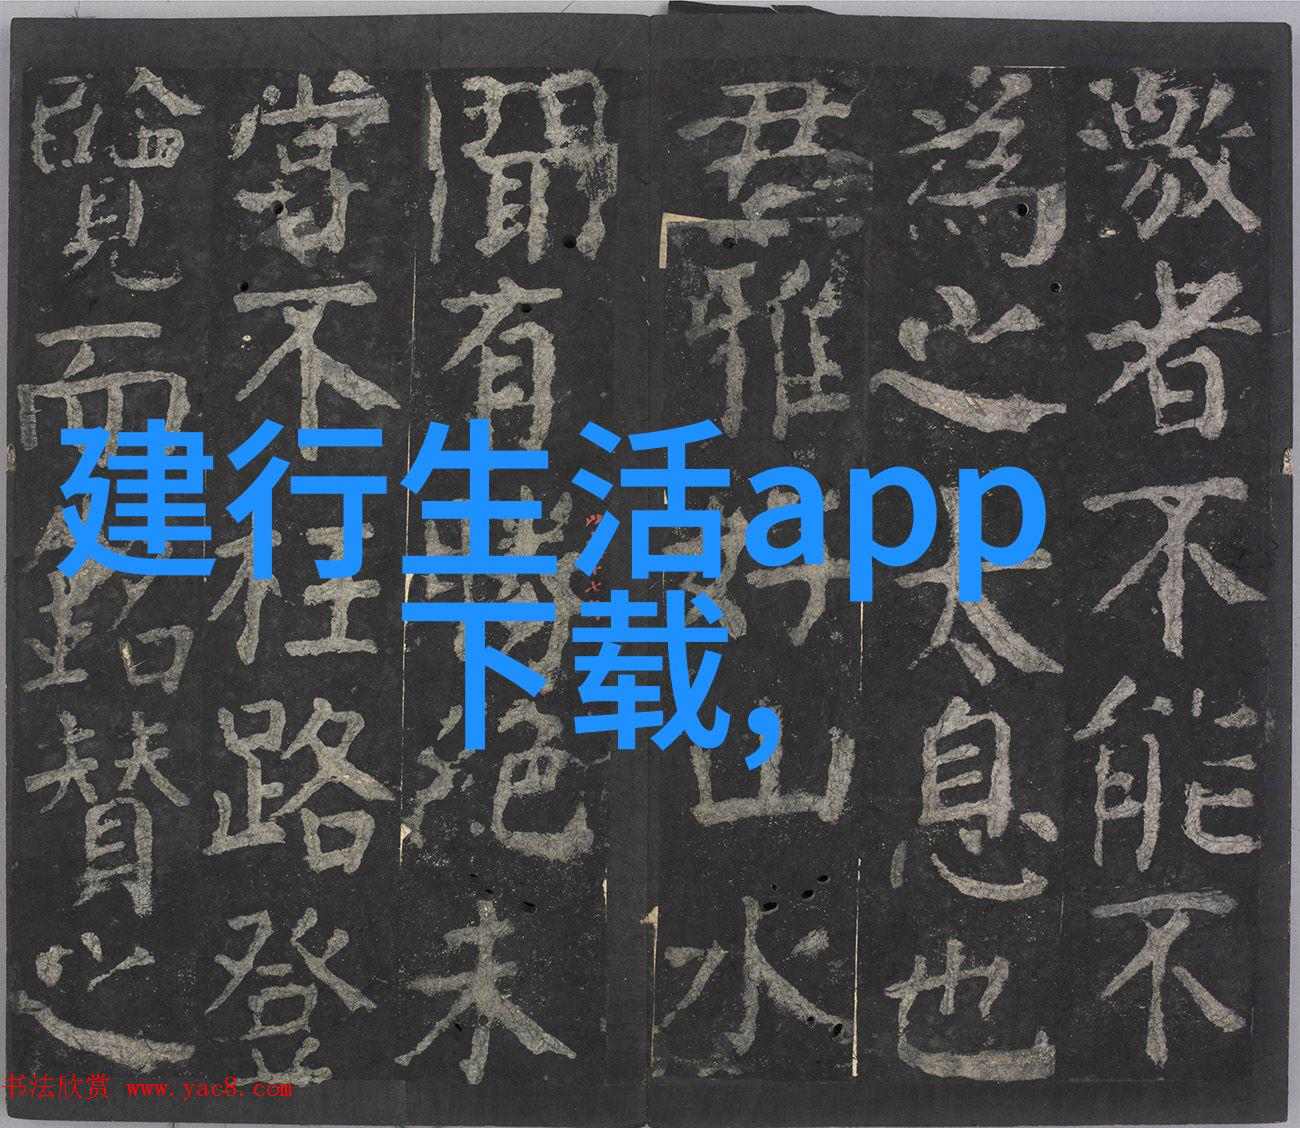 激者不能不
為之太息也
君雅好山水
聞有勝絕未
嘗不枉路登
覽而銘贊之
建行生活app
下载,
书法欣赏 www.yac8.com